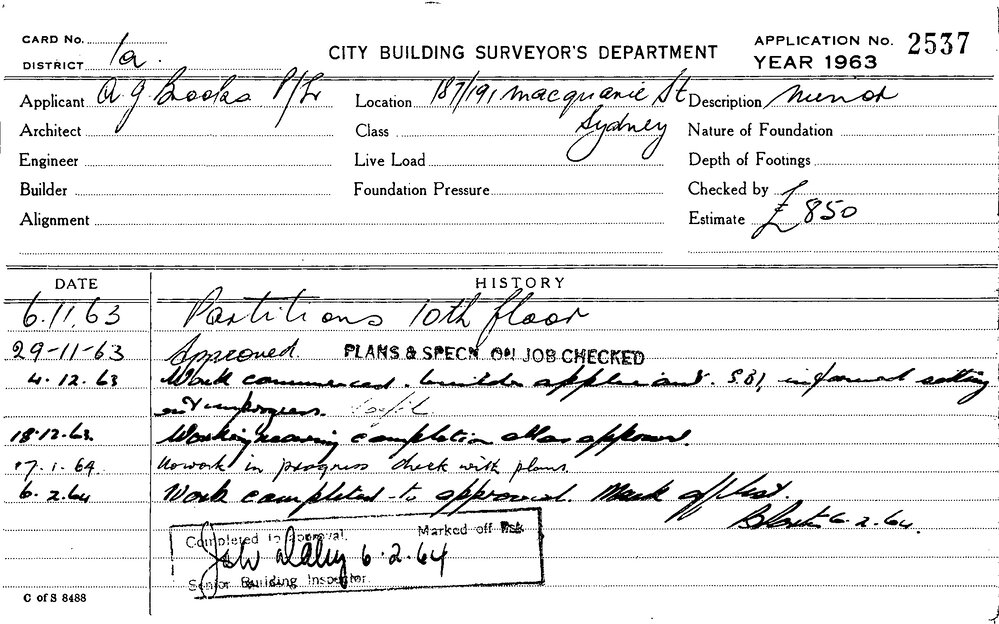 CARD No. 1a.
DISTRICT
CITY BUILDING SURVEYOR'S DEPARTMENT
APPLICATION No. 2537
YEAR 1963
Applicant A G Brooks P/L
Location 187/191 Macquarie St Sydney
Description Minor
Architect
Class
Nature of Foundation
Engineer
Live Load
Depth of Footings
Builder
Foundation Pressure
Checked by
Alignment
Estimate £850
DATE HISTORY
6.11.63 Partitions 10th floor
29-11-63 Approved. PLANS & SPECN. ON JOB CHECKED
4.12.63 Work commenced. builder applicant. S.B.I. informed setting
out in progress.
18.12.63 Work nearing completion all as approved.
17.1.64 No work in progress check with plans.
6.2.64 Work completed to approval. Mark off list.
6.2.64.
Completed to approval. Marked off
6.2.64
Senior Building Inspector.
C of S 8488